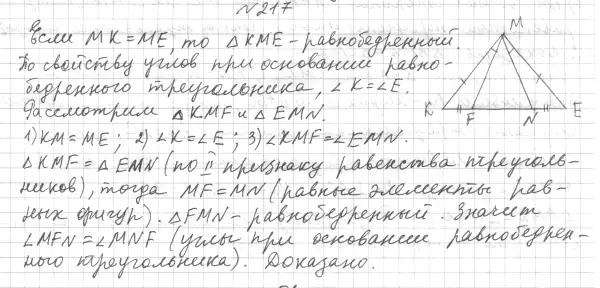 № 217
Если MK = ME, то △KME - равнобедренный.
По свойству углов при основании равно-
бедренного треугольника, ∠K=∠E.
Рассмотрим △KMF и △EMN.
1) KM=ME; 2) ∠K=∠E; 3) ∠KMF=∠EMN.
△KMF=△EMN (по II признаку равенства треуголь-
ников), тогда MF=MN (равные элементы рав-
ных фигур). △FMN - равнобедренный. Значит
∠MFN=∠MNF (углы при основании равнобедрен-
ного треугольника). Доказано.
M
K F N E